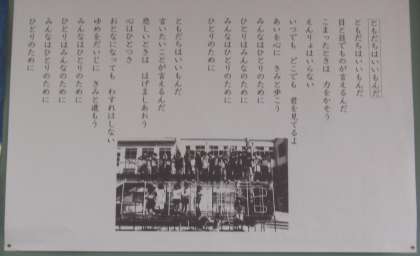 ともだちはいいもんだ
ともだちはいいもんだ
目と目でものが言えるんだ
こまったときは 力をかそう
えんりょはいらない
いつでも どこでも 君を見てるよ
あいを心に きみと歩こう
みんなはひとりのために
ひとりはみんなのために
みんなはひとりのために
ひとりのために
ともだちはいいもんだ
言いたいことが言えるんだ
悲しいときは はげましあおう
心はひとつさ
おとなになっても わすれはしない
ゆめをだいじに きみと進もう
みんなはひとりのために
ひとりはみんなのために
みんなはひとりのために
ひとりのために